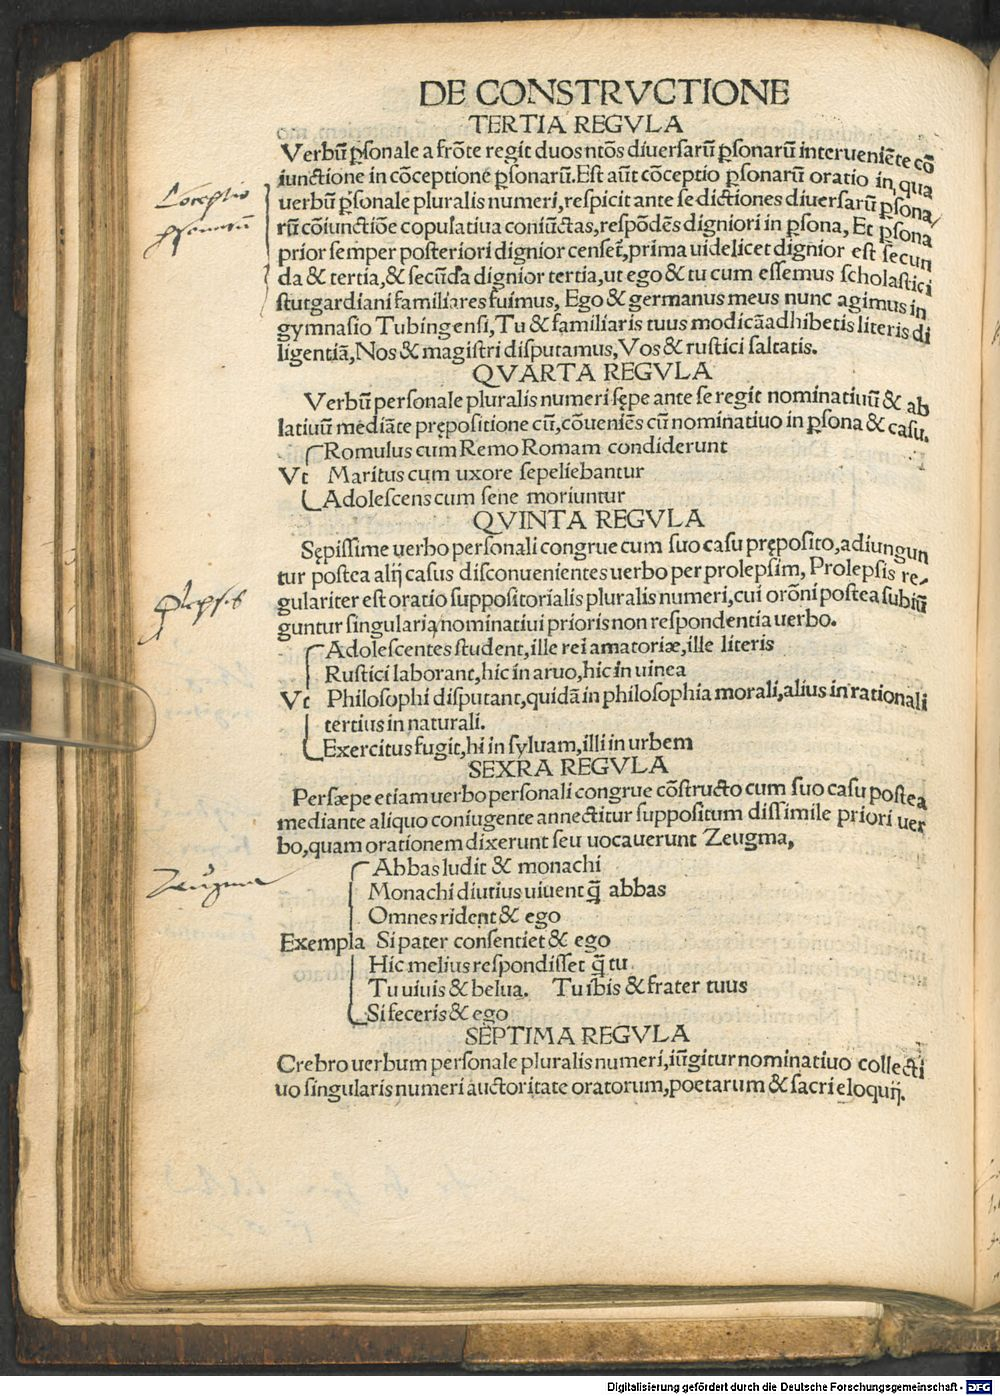 DE CONSTRVCTIONE
TERTIA REGVLA
Verbū ꝑsonale a frōte regit duos ntōs diuersarū ꝑsonarū interueniēte cō
iunctione in cōceptione ꝑsonarū. Est aūt cōceptio ꝑsonarū oratio in qua
uerbū ꝑsonale pluralis numeri, respicit ante se dictiones diuersarū ꝑsona/
rū cōiunctiōe copulatiua coniūctas, respōdēs digniori in ꝑsona, Et ꝑsona
prior semper posteriori dignior censet̄, prima uidelicet dignior est secun
da & tertia, & secūda dignior tertia, ut ego & tu cum essemus scholastici
stutgardiani familiares fuimus, Ego & germanus meus nunc agimus in
gymnasio Tubingensi, Tu & familiaris tuus modicā adhibetis literis di
ligentiā, Nos & magistri disputamus, Vos & rustici saltatis.
Cōceptio
ꝑsonarū
QVARTA REGVLA
Verbū personale pluralis numeri sępe ante se regit nominatiuū & ab
latiuū mediāte prępositione cū, cōueniēs cū nominatiuo in ꝑsona & casu.
Romulus cum Remo Romam condiderunt
Vt Maritus cum uxore sepeliebantur
Adolescens cum sene moriuntur
QVINTA REGVLA
Sępissime uerbo personali congrue cum suo casu pręposito, adiungun
tur postea alij casus disconuenientes uerbo per prolepsim, Prolepsis re/
gulariter est oratio suppositorialis pluralis numeri, cui orōni postea subiū
guntur singularia, nominatiui prioris non respondentia uerbo.
ꝓlepsis
Adolescentes student, ille rei amatoriæ, ille literis
Rustici laborant, hic in aruo, hic in uinea
Vt Philosophi disputant, quidā in philosophia morali, alius in rationali
tertius in naturali.
Exercitus fugit, hi in syluam, illi in urbem
SEXRA REGVLA
Persæpe etiam uerbo personali congrue cōstructo cum suo casu postea
mediante aliquo coniugente annectitur suppositum dissimile priori uer
bo, quam orationem dixerunt seu uocauerunt Zeugma,
Zeugma
Abbas ludit & monachi
Monachi diutius uiuent q̄ abbas
Omnes rident & ego
Exempla Si pater consentiet & ego
Hic melius respondisset q̄ tu
Tu uiuis & belua. Tu ibis & frater tuus
Si feceris & ego
SEPTIMA REGVLA
Crebro uerbum personale pluralis numeri, iūgitur nominatiuo collecti
uo singularis numeri auctoritate oratorum, poetarum & sacri eloquij.
Digitalisierung gefördert durch die Deutsche Forschungsgemeinschaft - DFG